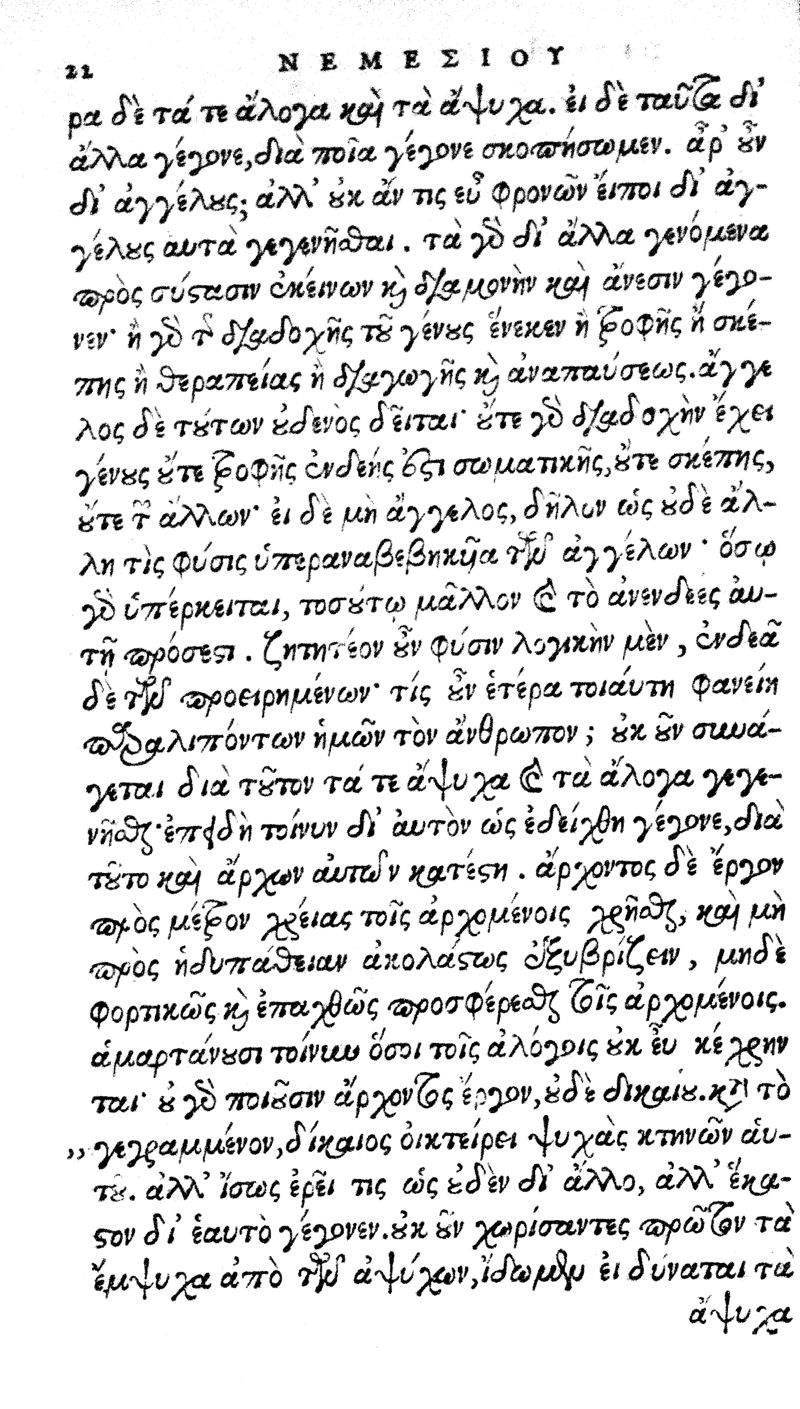 22 ΝΕΜΕΣΙΟΥ
ρα δὲ τά τε ἄλογα καὶ τὰ ἄψυχα. εἰ δὲ ταῦτα δι’
ἄλλα γέγονε, διὰ ποῖα γέγονε σκοπήσωμεν. ἆρ’ οὖν
δι’ ἀγγέλους; ἀλλ’ οὐκ ἄν τις εὖ φρονῶν εἴποι δι’ ἀγ-
γέλους αὐτὰ γεγενῆσθαι. τὰ γὰρ δι’ ἄλλα γενόμενα
πρὸς σύστασιν ἐκείνων κὶ διαμονὴν καὶ ἄνεσιν γέγο-
νεν· ἢ γὰρ τῆς διαδοχῆς τοῦ γένους ἕνεκεν ἢ τροφῆς ἢ σκέ-
πης ἢ θεραπείας ἢ διαγωγῆς κὶ ἀναπαύσεως. ἄγγε
λος δὲ τούτων οὐδενὸς δεῖται· οὔτε γὰρ διαδοχὴν ἔχει
γένους οὔτε τροφῆς ἐνδεής ἐστι σωματικῆς, οὔτε σκέπης,
οὔτε τῶν ἄλλων· εἰ δὲ μὴ ἄγγελος, δῆλον ὡς οὐδὲ ἄλ-
λη τὶς φύσις ὑπεραναβεβηκυῖα τῶν ἀγγέλων· ὅσῳ
γὰρ ὑπέρκειται, τοσούτῳ μᾶλλον καὶ τὸ ἀνενδεὲς αὐ-
τῇ πρόσεστι. ζητητέον οὖν φύσιν λογικὴν μὲν, ἐνδεᾶ
δὲ τῶν προειρημένων· τίς οὖν ἑτέρα τοιάυτη φανείη
παραλιπόντων ἡμῶν τὸν ἄνθρωπον; οὐκ οῦν συνά-
γεται διὰ τοῦτον τά τε ἄψυχα καὶ τὰ ἄλογα γεγε-
νῆσθαι· ἐπειδὴ τοίνυν δι’ αὐτὸν ὡς ἐδείχθη γέγονε, διὰ
τοῦτο καὶ ἄρχων αὐτῶν κατέστη. ἄρχοντος δὲ ἔργον
πρὸς μέτρον χρείας τοῖς ἀρχομένοις χρῆσθαι, καὶ μὴ
πρὸς ἡδυπάθειαν ἀκολάστως ἐξυβρίζειν, μηδὲ
φορτικῶς κὶ ἐπαχθῶς προσφέρεσθαι τοῖς ἀρχομένοις.
ἁμαρτάνουσι τοίνυν ὅσοι τοῖς ἀλόγοις οὐκ εὖ κέχρην
ται· οὐ γὰρ ποιοῦσιν ἄρχοντος ἔργον, οὐδὲ δικαίου. κατὰ τὸ
,, γεγραμμένον, δίκαιος οἰκτείρει ψυχὰς κτηνῶν αὑ-
τοῦ. ἀλλ’ ἴσως ἐρεῖ τις ὡς οὐδὲν δι’ ἄλλο, ἀλλ’ ἕκα-
στον δι’ ἑαυτὸ γέγονεν. οὐκ οῦν χωρίσαντες πρῶτον τὰ
ἔμψυχα ἀπὸ τῶν ἀψύχων, ἴδωμεν εἰ δύναται τὰ
ἄψυχα